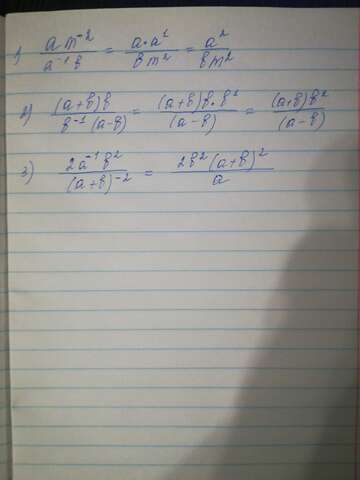 1) \frac{a m^{-2}}{a^{-1} b} = \frac{a \cdot a^1}{b m^2} = \frac{a^2}{b m^2}
2) \frac{(a+b) b}{b^{-1} (a-b)} = \frac{(a+b) b \cdot b^1}{(a-b)} = \frac{(a+b) b^2}{(a-b)}
3) \frac{2a^{-1} b^2}{(a+b)^{-2}} = \frac{2b^2 (a+b)^2}{a}